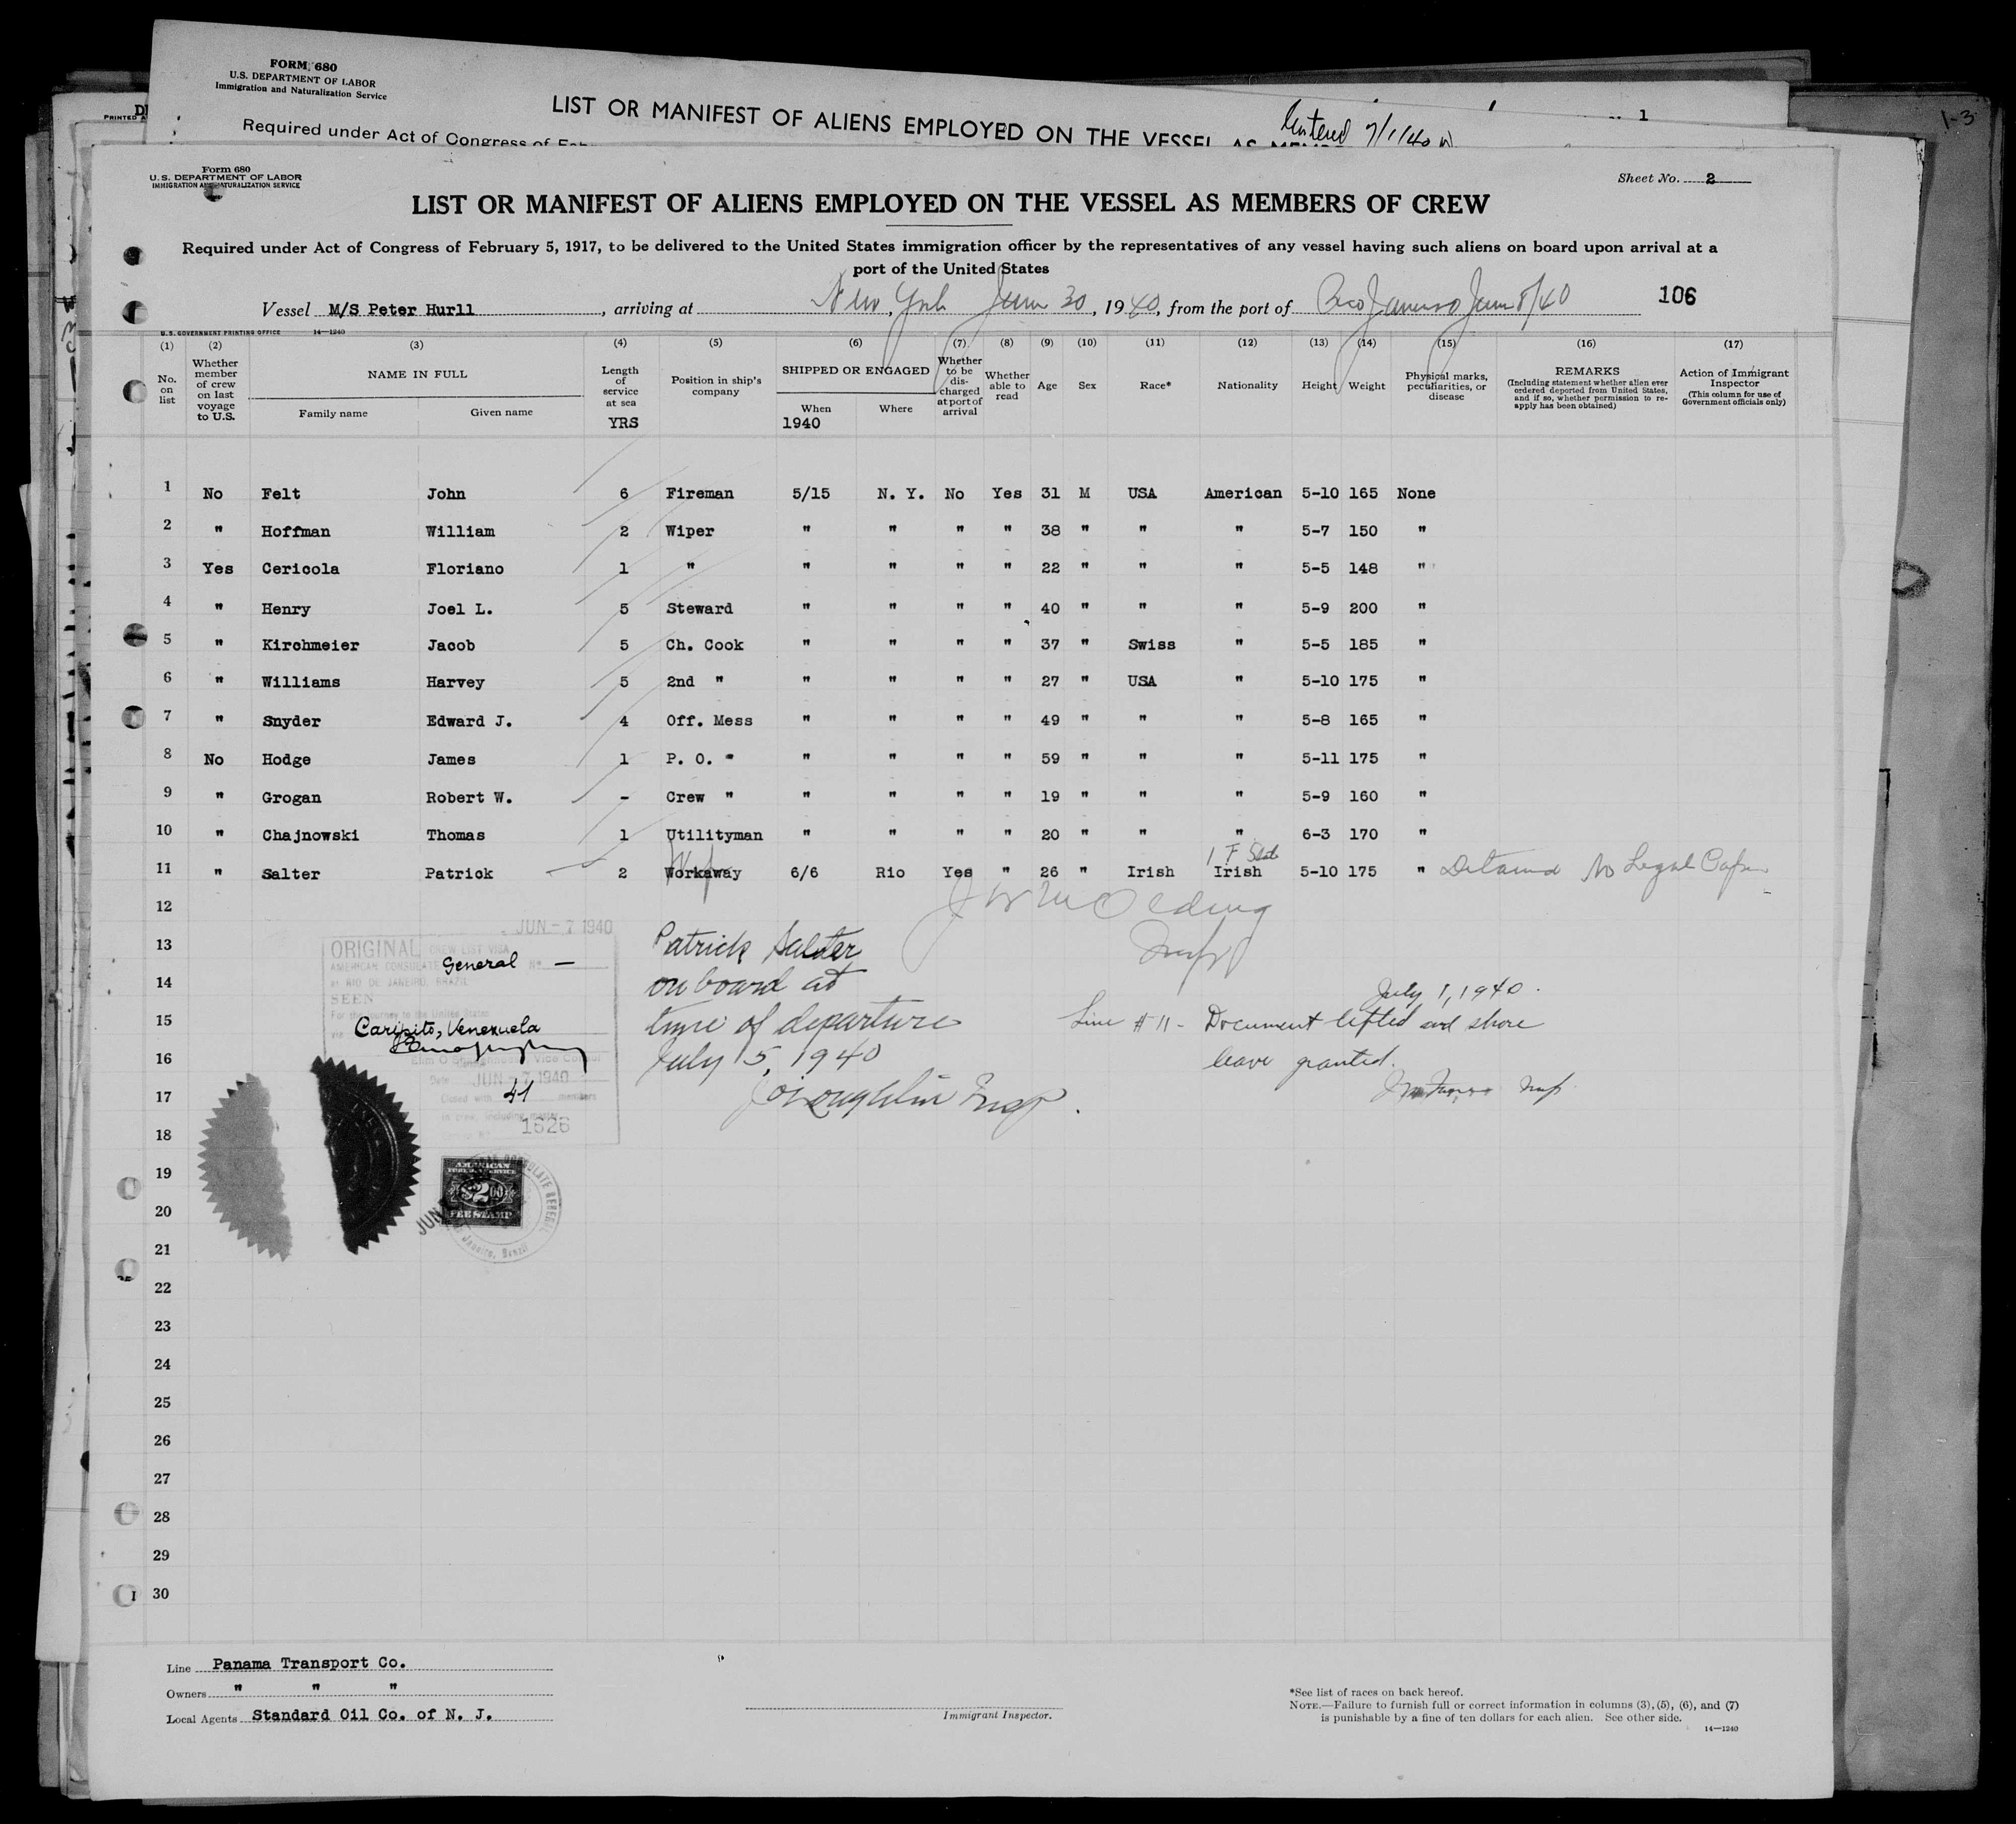 FORM 680
U.S. DEPARTMENT OF LABOR
Immigration and Naturalization Service
LIST OR MANIFEST OF ALIENS EMPLOYED ON THE VESSEL AS
Entered 7/1/40
1
1-3
PRINTED
Required under Act of Congress of
Form 680
U. S. DEPARTMENT OF LABOR
IMMIGRATION AND NATURALIZATION SERVICE
Sheet No. 2
LIST OR MANIFEST OF ALIENS EMPLOYED ON THE VESSEL AS MEMBERS OF CREW
Required under Act of Congress of February 5, 1917, to be delivered to the United States immigration officer by the representatives of any vessel having such aliens on board upon arrival at a
port of the United States
Vessel M/S Peter Hurll, arriving at New York June 30, 1940, from the port of Rio Janeiro June 8/40 106
U.S. GOVERNMENT PRINTING OFFICE 14—1240
(1) (2) (3) (4) (5) (6) (7) (8) (9) (10) (11) (12) (13) (14) (15) (16) (17)
No. on list
Whether member of crew on last voyage to U.S.
NAME IN FULL
Family name Given name
Length of service at sea
YRS
Position in ship's company
SHIPPED OR ENGAGED
When Where
1940
Whether to be discharged at port of arrival
Whether able to read
Age
Sex
Race*
Nationality
Height
Weight
Physical marks, peculiarities, or disease
REMARKS
(Including statement whether alien ever ordered deported from United States, and if so, whether permission to reapply has been obtained)
Action of Immigrant Inspector
(This column for use of Government officials only)
1 No Felt John 6 Fireman 5/15 N. Y. No Yes 31 M USA American 5-10 165 None
2 " Hoffman William 2 Wiper " " " " 38 " " " 5-7 150 "
3 Yes Cericola Floriano 1 " " " " " 22 " " " 5-5 148 "
4 " Henry Joel L. 5 Steward " " " " 40 " " " 5-9 200 "
5 " Kirchmeier Jacob 5 Ch. Cook " " " " 37 " Swiss " 5-5 185 "
6 " Williams Harvey 5 2nd " " " " " 27 " USA " 5-10 175 "
7 " Snyder Edward J. 4 Off. Mess " " " " 49 " " " 5-8 165 "
8 No Hodge James 1 P. O. " " " " " 59 " " " 5-11 175 "
9 " Grogan Robert W. - Crew " " " " " 19 " " " 5-9 160 "
10 " Chajnowski Thomas 1 Utilityman " " " " 20 " " " 6-3 170 "
11 " Salter Patrick 2 Workaway 6/6 Rio Yes " 26 " Irish Irish 5-10 175 " Detained No Legal
12
13
14
15
16
17
18
19
20
21
22
23
24
25
26
27
28
29
30
JUN - 7 1940
ORIGINAL CREW LIST VISA
AMERICAN CONSULATE General No. —
at RIO DE JANEIRO, BRAZIL
SEEN
For the journey to the United States
via Caripito, Venezuela
Vice Consul
Date JUN - 7 1940
Closed with 41 members
in crew, including master
1626
AMERICAN
FOREIGN SERVICE
$2.00
FEE STAMP
JUN
Janeiro, Brazil
Patrick Salter
on board at
time of departure
July 5, 1940
Insp.
July 1, 1940.
Line #11 - Document lifted and shore
leave granted.
Insp.
Line Panama Transport Co.
Owners " " "
Local Agents Standard Oil Co. of N. J.
Immigrant Inspector.
*See list of races on back hereof.
NOTE.—Failure to furnish full or correct information in columns (3), (5), (6), and (7)
is punishable by a fine of ten dollars for each alien. See other side.
14—1240